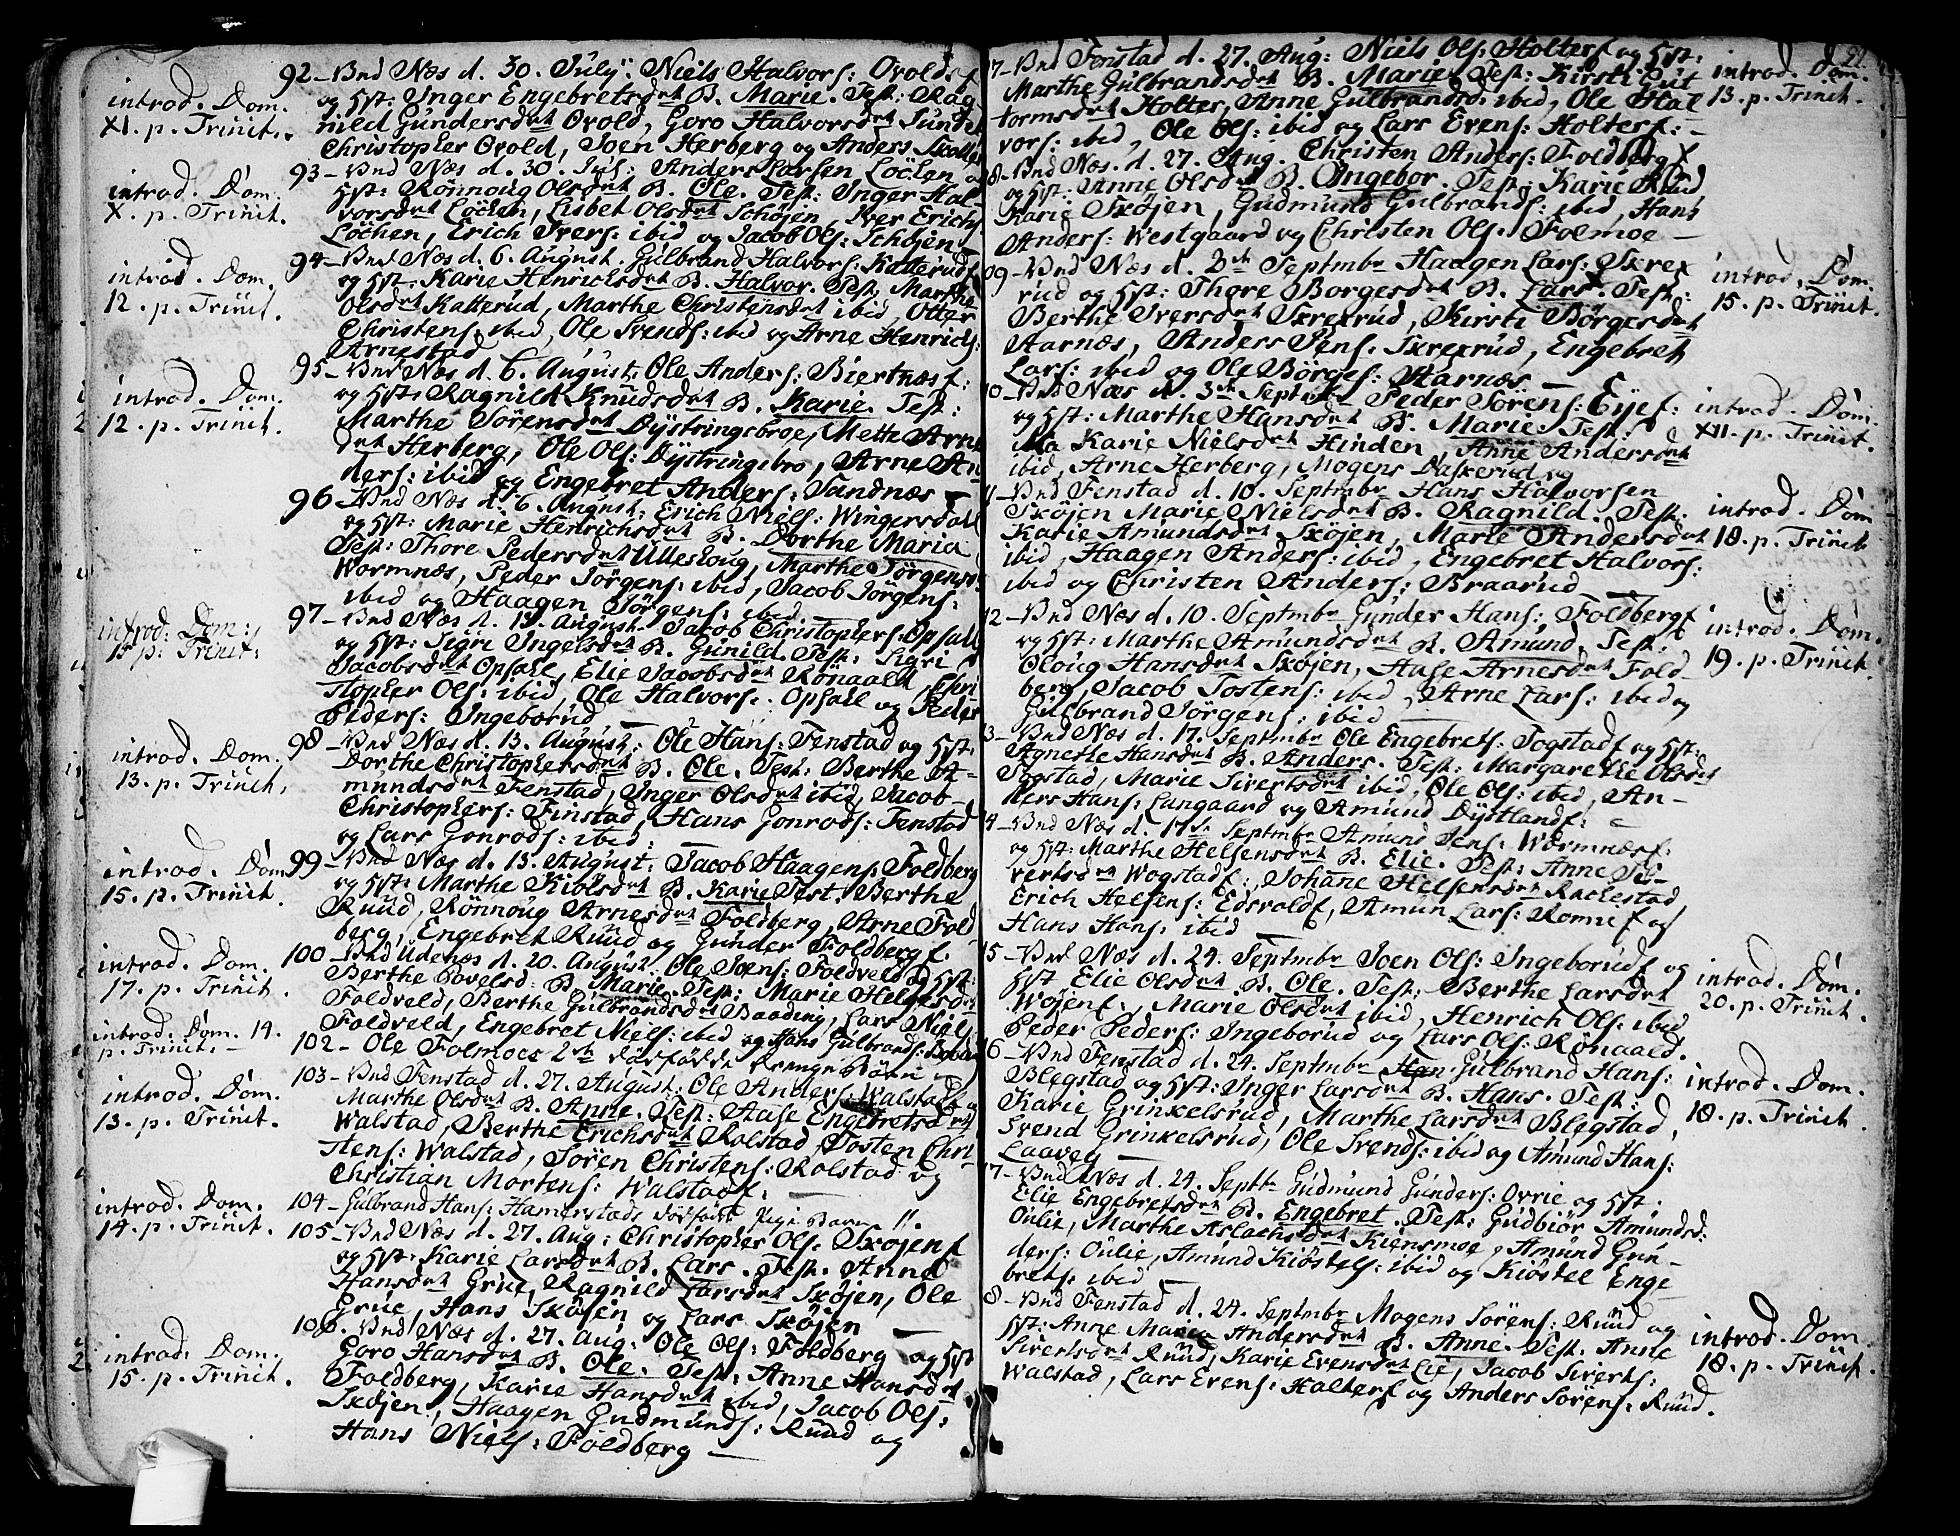 92 - Vnd Næs d. 30. July: Niels Halvors: Ovold f
og Hst: Inger Engebretsdrt B. Marie. Test: Rag
nild Gundersdrt Ovold, Goro Halvorsdrt Sunde
Christopher Ovold, Joen Herberg og Anders
introd. Dom.
XI. p. Trinit.
93 - Vnd Næs d. 30. Jul: Anders Larsen Löchen
Hst: Rönnoug Olsdrt B. Ole. Test: Inger Hal
vorsdrt Löchen, Lisbet Olsdrt Schöjen, Iver Erich
Löchen, Erich Ivers: ibid og Jacob Ols: Schöjen
introd. Dom.
X. p. Trinit.
94 - Vnd Næs d. 6. August. Gulbrand Halvors: Katterud
og Hst: Karie Henrichsdrt B. Halvor. Test. Marthe
Olsdrt Katterud, Marthe Christensdrt ibid, Otter
Christens: ibid, Ole Svends: ibid og Arne Henrichs:
Arnestad
introd. Dom.
12. p. Trinit.
95 - Vnd Næs d. 6. August. Ole Anders: Biertnæs f:
og Hst: Ragnild Knudsdrt B. Karie. Test:
Marthe Sörensdrt Dystringsbroe, Mette Arne
drt Herberg, Ole Ols: Dystringsbro, Arne An
ders: ibid og Engebret Anders: Sandnæs
introd. Dom.
12. p. Trinit.
96 - Vnd Næs d. 6. August: Erich Niels: Wingersdahl
og Hst: Marie Henrichsdrt B. Dorthe Maria
Test: Thore Pedersdrt Ulleskoug, Marthe Jörgens
Wormnæs, Peder Jörgens: ibid, Jacob Jörgens:
ibid og Haagen Jörgens: ibid
97 - Vnd Næs d. 13. August. Jacob Christophers: Opsahl
og Hst: Sigri Ingelsdrt B. Gunild. Test: Sigri
Jacobsdrt Opsahl, Elie Jacobsdrt Rönaald, Chri
stopher Ols: ibid, Ole Halvors: Opsahl og Peder
Peders: Ingeborud
introd: Dom:
15 p: Trinit:
98 - Vnd Næs d. 13. August: Ole Hans: Fenstad og Hst:
Dorthe Christophersdrt B. Ole. Test: Berthe A-
mundsdrt Fenstad, Inger Olsdrt ibid, Jacob
Christophers: Finstad, Hans Gonrods: Fenstad
og Lars Gonrods: ibid:
introd. Dom.
13. p. Trinit,
99 - Vnd Næs d. 13. August: Jacob Haagens: Foldberg
og Hst: Marthe Kiölsdrt B. Karie Test. Berthe
Ruud, Rönnoug Arnesdrt Foldberg, Arne Fold
berg, Engebret Ruud og Gunder Foldberg f.
introd. Dom
15. p. Trinit.
100 - Vnd Udenæs d. 20. August: Ole Joens: Foldveld og Hst:
Berthe Povelsd: B. Marie. Test: Marie Helgesdr
Foldveld, Berthe Gulbrandsdrt Baading, Lars Niels
Foldveld, Engebret Niels: ibid og Hans Gulbrands:
introd. Dom.
17. p. Trinit.
102 - Ole Folmoes 2de dödfödde Drenge Börn
introd. Dom. 14.
p. Trinit. -
103 - Vnd Fenstad d. 27. August: Ole Anders: Walstad f og
Marthe Olsdrt B. Anne. Test: Aase Engebretsdrt
Walstad, Berthe Erichsdrt Rolstad, Tosten Chri-
stens: Walstad, Sören Christens: Rolstad og
Christian Mortens: Walstad f.
introd. Dom.
13. p. Trinit.
104 - Gulbrand Hans: Hamerstads dödfödt Pige Barn
introd. Dom.
14. p. Trinit.
105 - Vnd Næs d. 27. Aug: Christopher Ols: Skojen f
og Hst: Karie Larsdrt B. Lars. Test. Anne
Hansdrt Grue, Ragnild Larsdrt Skojen, Ole
Grue, Hans Skojen og Lars Skojen
106. Vnd Næs d. 27. Aug: Ole Ols: Foldberg og Hst
Goro Hansdrt B. Ole. Test: Anne Hansdrt
Foldberg, Karie Hansdrt ibid, Jacob Ols:
Skojen, Haagen Gudmunds: Ruud og
Hans Niels: Foldberg
introd: Dom.
15. p. Trinit.
7 - Vnd Fenstad d. 27. Aug: Niels Ols: Holter f og Hst:
Marthe Gulbrandsdrt B. Marie. Test: Kirsti Gut
tormsdrt Holter, Anne Gulbrandsd: ibid, Ole Hal
vors: ibid, Ole Ols: ibid og Lars Evens: Holter f: -
introd. Dom.
13. p. Trinit.
8 - Vnd Næs. d. 27. Aug. Christen Anders: Foldberg f
og Hst: Anne Olsdrt B. Ingebor. Test: Karie Ruud
Karie Skojen, Gudmund Gulbrands: ibid, Hans
Anders: Westgaard og Christen Ols: Folmoe
09 - Vnd Næs d. 3de Septmbr Haagen Lars: Skrex
rud og Hst: Thore Borgesdrt B. Lars. Test:
Berthe Iversdrt Skrexrud, Kirsti Börgesdrt
Aarnæs, Anders Jens: Skrexrud, Engebret
Lars: ibid og Ole Börges: Aarnæs
introd. Dom.
15. p. Trinit.
10 - Vnd Næs d. 3de Septmbr Peder Sörens: Eye f:
og Hst: Marthe Hansdrt B. Marie. Test:
Karie Nielsdrt Hinden, Anne Andersdrt
ibid, Arne Herberg, Mogens Daskerud og
introd. Dom.
XII. p. Trinit.
11 - Vnd Fenstad d. 10. Septmbr Hans Halvorsen
Skojen Marie Nielsdrt B. Ragnild. Test.
Karie Amundsdrt Skojen, Marie Andersdrt
ibid, Haagen Anders: ibid, Engebret Halvors:
ibid og Christen Anders: Braarud
introd. Dom
18. p. Trinit
12 - Vnd Næs d. 10. Septmbr Gunder Hans: Foldberg f
og Hst: Marthe Amundsdrt B. Amund. Test:
Oloug Hansdrt Skojen, Aase Arnesdrt Fold-
berg, Jacob Tostens: ibid, Arne Lars: ibid og
Gulbrand Jörgens: ibid
introd. Dom.
19. p. Trinit.
3 - Vnd Næs d. 17. Septmbr Ole Engebrets: Togstad f og Hst:
Agnethe Hansdrt B. Anders. Test: Margarethe Olsdrt
Togstad, Marie Sivertsdrt ibid, Ole Ols: ibid, An-
ders Hans: Langaard og Amund Dystland f:
4 - Vnd Næs d. 17de Septmbr Amund Jens: Wormnæs f:
og Hst: Marthe Helsensdrt B. Elie. Test: Anne Si-
vertsdrt Wogstad f:, Johane Helsensdrt Rachestad,
Erich Helsens: Edsvold f, Amun Lars: Romne f og
Hans Hans: ibid
5 - Vnd Næs d. 24. Septmbr Joen Ols: Ingeborud f og
Hst Elie Olsdrt B. Ole. Test: Berthe Larsdrt
Wojen f:, Marie Olsdrt ibid, Henrich Ols: ibid
Peder Peders: Ingeborud og Lars Ols: Rönaald.
introd. Dom.
20. p. Trinit.
16 - Vnd Fenstad d. 24. Septmbr Gulbrand Hans:
Blegstad og Hst: Inger Larsdrt B. Hans. Test:
Karie Grinkelsrud, Marthe Larsdrt Blegstad,
Svend Grinkelsrud, Ole Svends: ibid og Amund Hans:
Laavey
introd. Dom.
18. p. Trinit.
17 - Vnd Næs d. 24. Septbr Gudmund Gunders: Ovrie og Hst.
Elie Engebretsdrt B. Engebret. Test: Gudbiör Amundsd:
Oulie, Marthe Aslachsdrt Kiensmoe, Amund Gun-
ders: Oulie, Amund Kiöstels: ibid og Kiöstel Enge
brets: ibid
8 - Vnd Fenstad d. 24. Septmbr Mogens Sörens: Ruud og
Hst: Anne Maria Andersdrt B. Anne. Test. Anne
Sivertsdrt Ruud, Karie Evensdrt Lie, Jacob Siverts:
Walstad, Lars Evens: Halter f og Anders Sörens: Ruud.
introd. Dom.
18. p. Trinit.